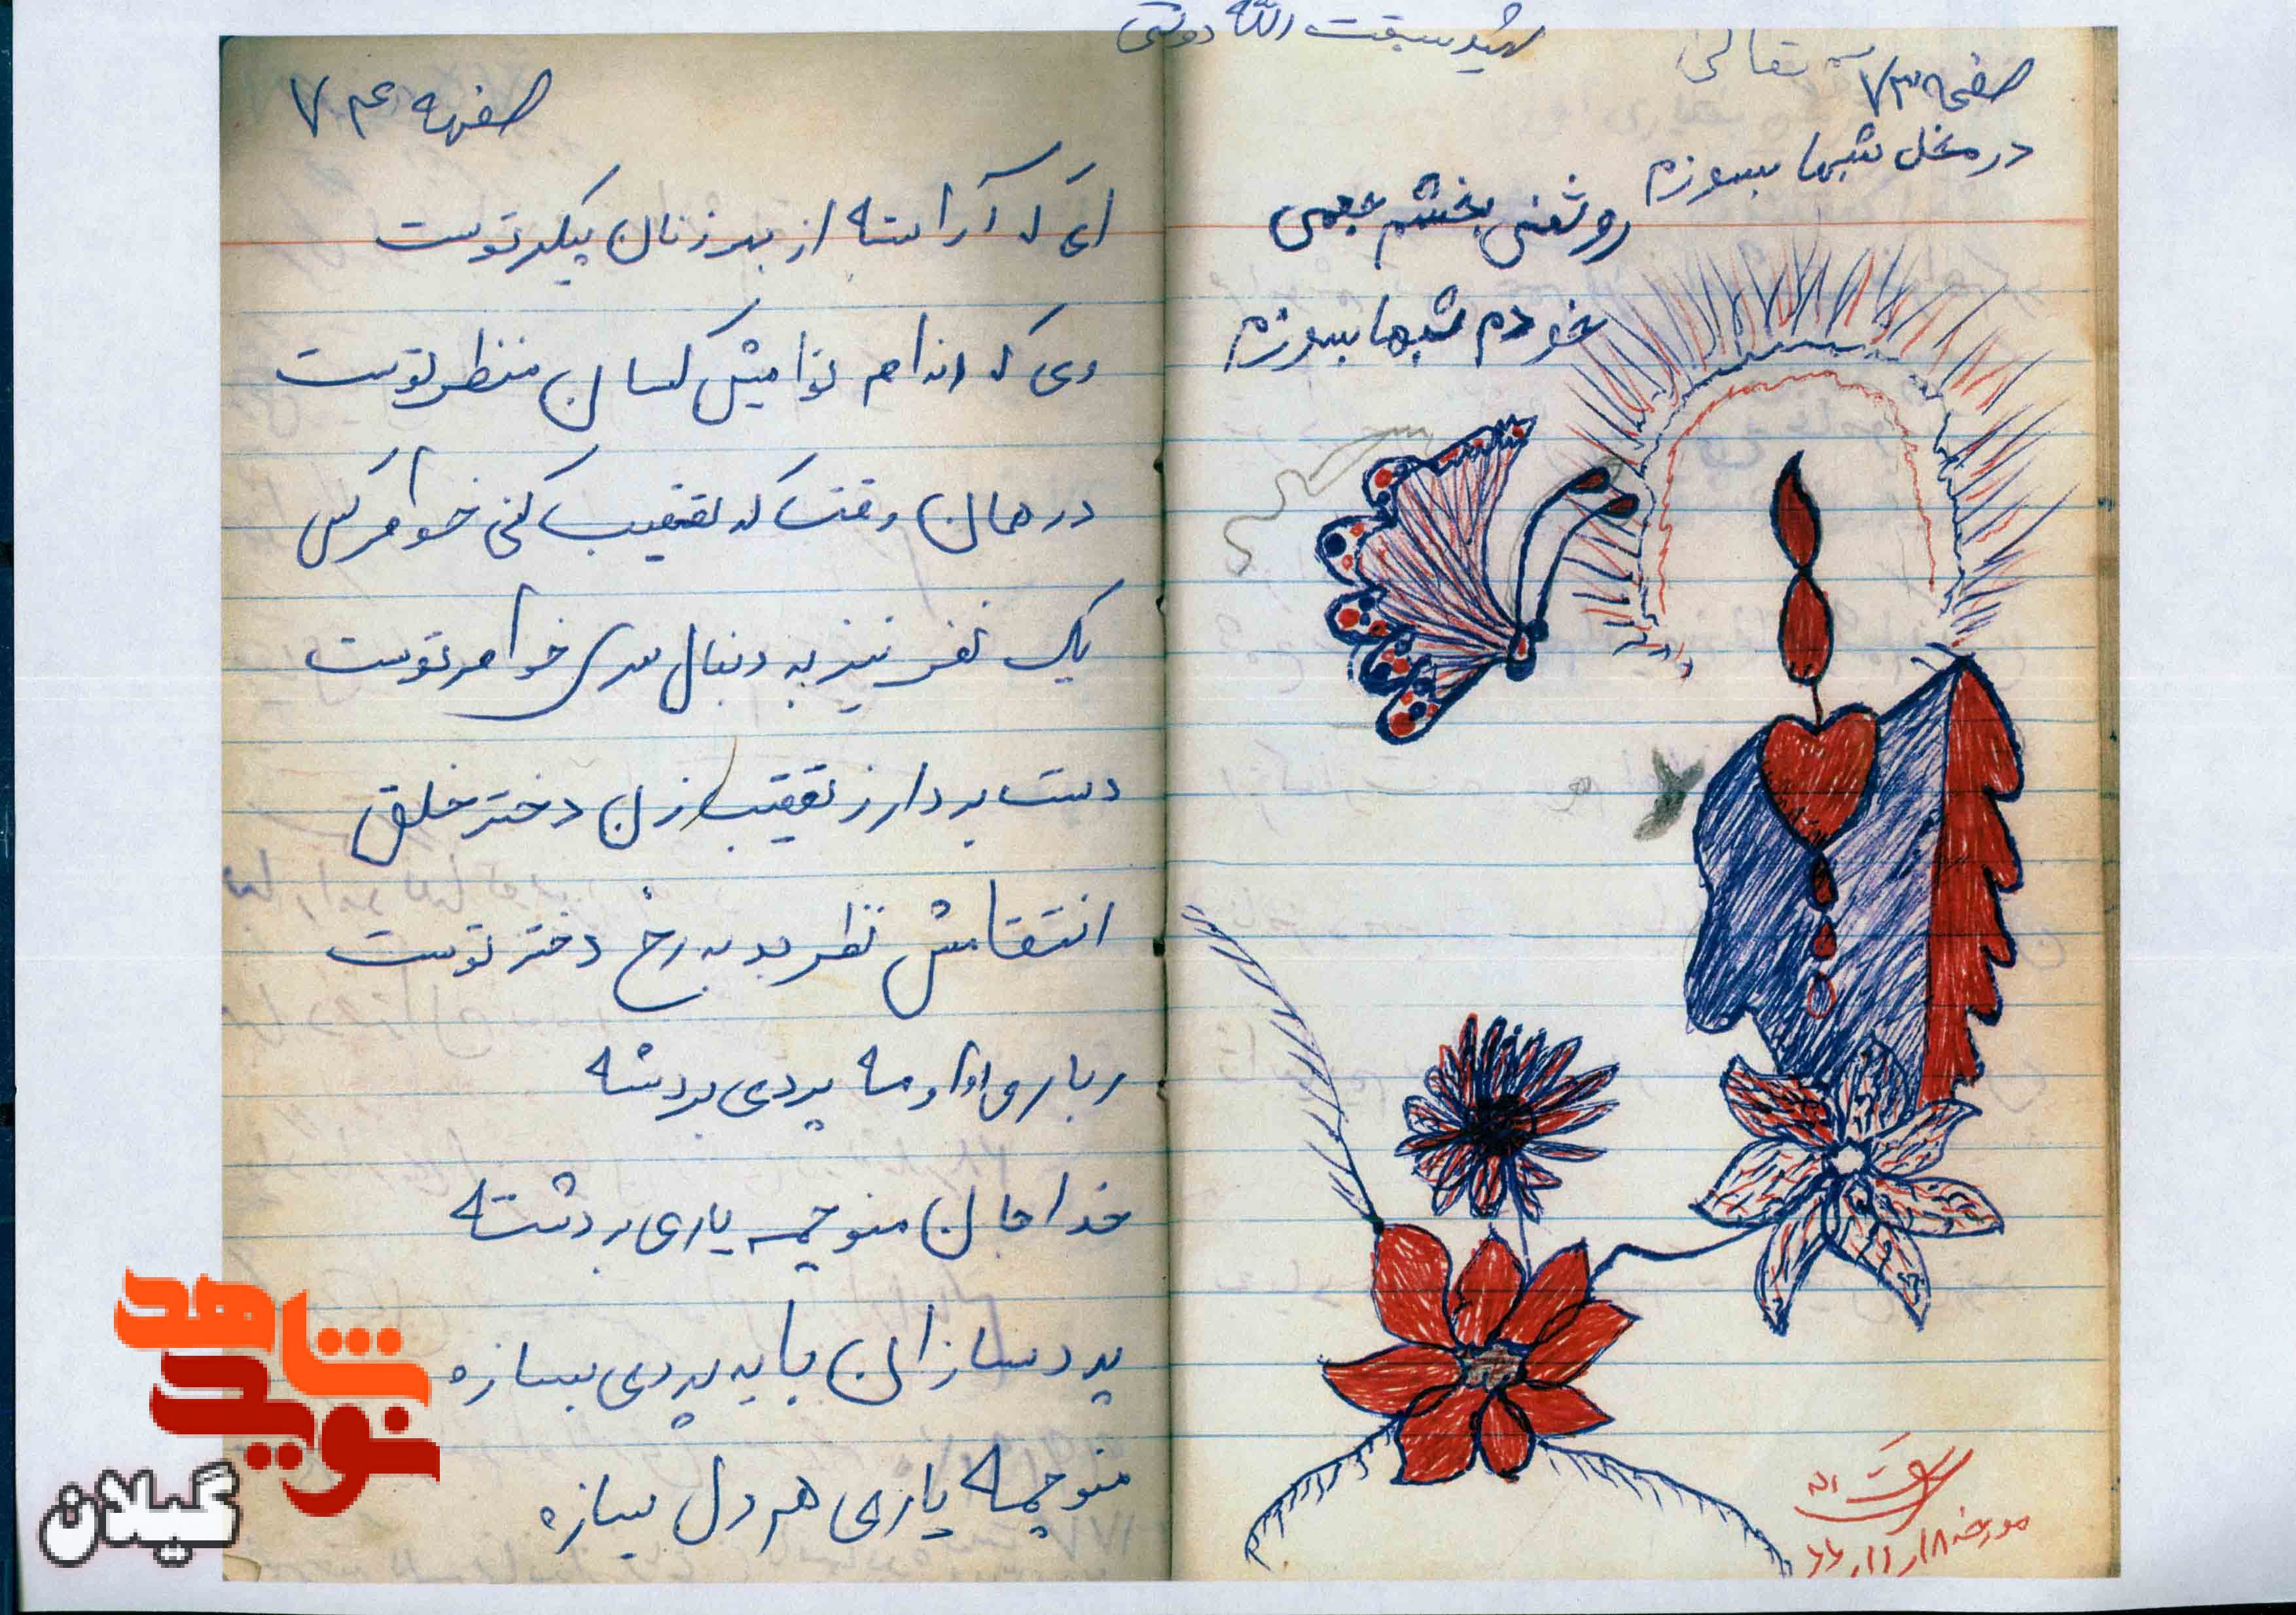 شهید سبقت الله دوستی
تعالی
صفحه ۷۳
در محفل شبها بسوزم
روشنی بخشم بجمعی
خودم شبها بسوزم
سبقت اله
مورخه ۱۸ر۱۱ر۶۶
صفهه ۷۴
ای که آراسته از بهر زنان پیکر توست
وی که اندام کسان منظر توست
در همان وقت که تعقیب کنی خواهر کس
یک نفر نیز به دنبال سر خواهر توست
دست بردار ز تعقیب زن دختر خلق
انتقامش نظر بد به رخ دختر توست
پردی بردشته
خدا جان منو چمه یاری بردشته
پردسازان باید پردی بسازه
منو چمه یاری هر دل بسازه
نوید شاهد
گیلان